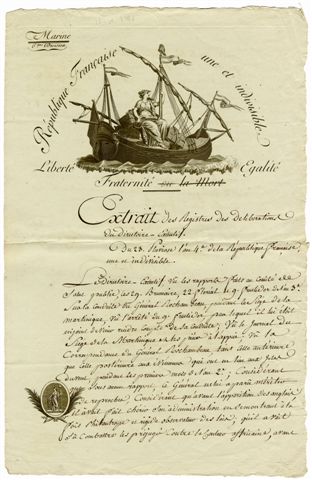 Marine
République Française une et indivisible
Liberté Egalité
Fraternité ou la Mort
Extrait des Registres des délibérations
du directoire-exécutif
Du 23 Pluviose l'an 4e de la République française,
une et indivisible.
Le Directoire-Exécutif, Vû les rapports faits au Comité de
Salut public, les 29 Brumaire, 22 et le 9 fructidor de l'an 3e
Sur la conduite du Général Rochambeau, pendant le Siège de la
Martinique, Vû l'arrêté du 9 fructidor, par lequel il lui était
enjoint de rendre compte de sa conduite; Vû le Journal du
Siège de la Martinique et les pièces à l'appui; Vû la
Correspondance du Général Rochambeau tant antérieure
que postérieure aux qui ont eu lieu
durant les premiers mois de l'an 2e; Considérant
que sous aucun rapport, ce Général n'a paru mériter
de reproches; Considérant qu'avant l'apparition des anglais
il avait fait chérir son administration en se montrant à la
fois philantrope et rigide observateur des lois; qu'il avait
sû combattre les préjugés contre la couleur africaine, avant